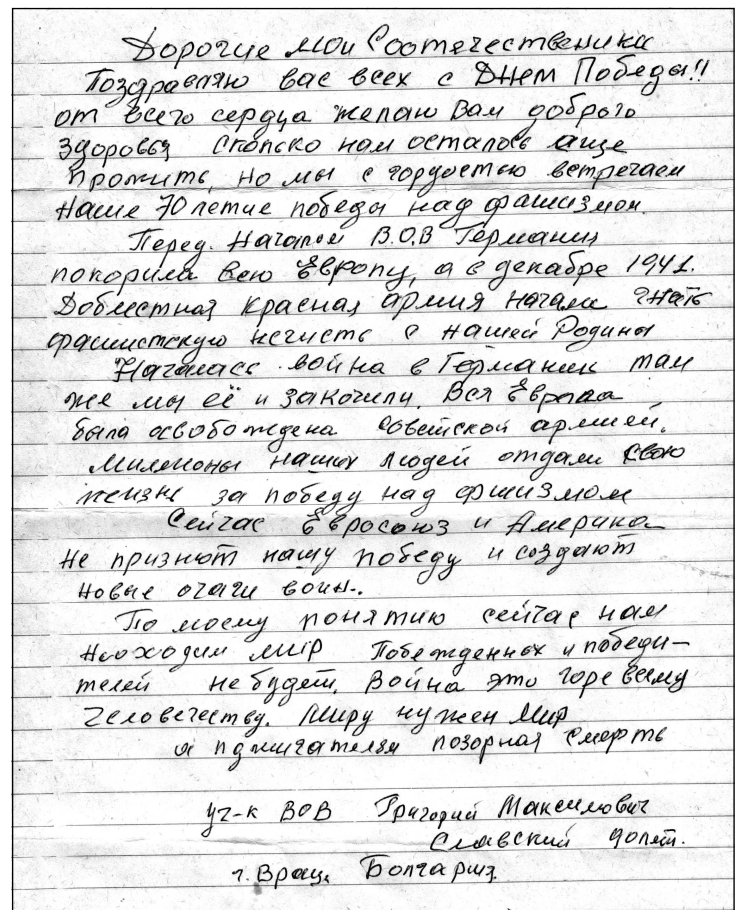 Дорогие мои Соотечественики
Поздравляю вас всех с Днем Победы!!
от всего сердца желаю Вам доброго
здоровья сколько нам осталось аще
прожить, но мы с гордостью встречаем
наше 70 летие победы над фашизмом.
Перед. Началом В.О.В Германия
покорила всю Европу, а в декабре 1941.
Доблестная красная армия начала гнать
фашистскую нечисть с нашей Родины
Началась война в Германии там
же мы её и закочили. Вся Европа
была освобождена советской армией.
Милионы наших людей отдали свою
жизнь за победу над фшизмом
Сейчас Евросоюз и Америка
не признют нашу победу и создают
новые очаги воин..
По моему понятию сейчас нам
необходим мир Побежденных и победи-
телей небудет. Война это горе всему
Человечеству. Миру нужен Мир
а пджигателям позорная смерть
уч-к ВОВ Григорий Максимович
Славский
г. Враца Болгария.